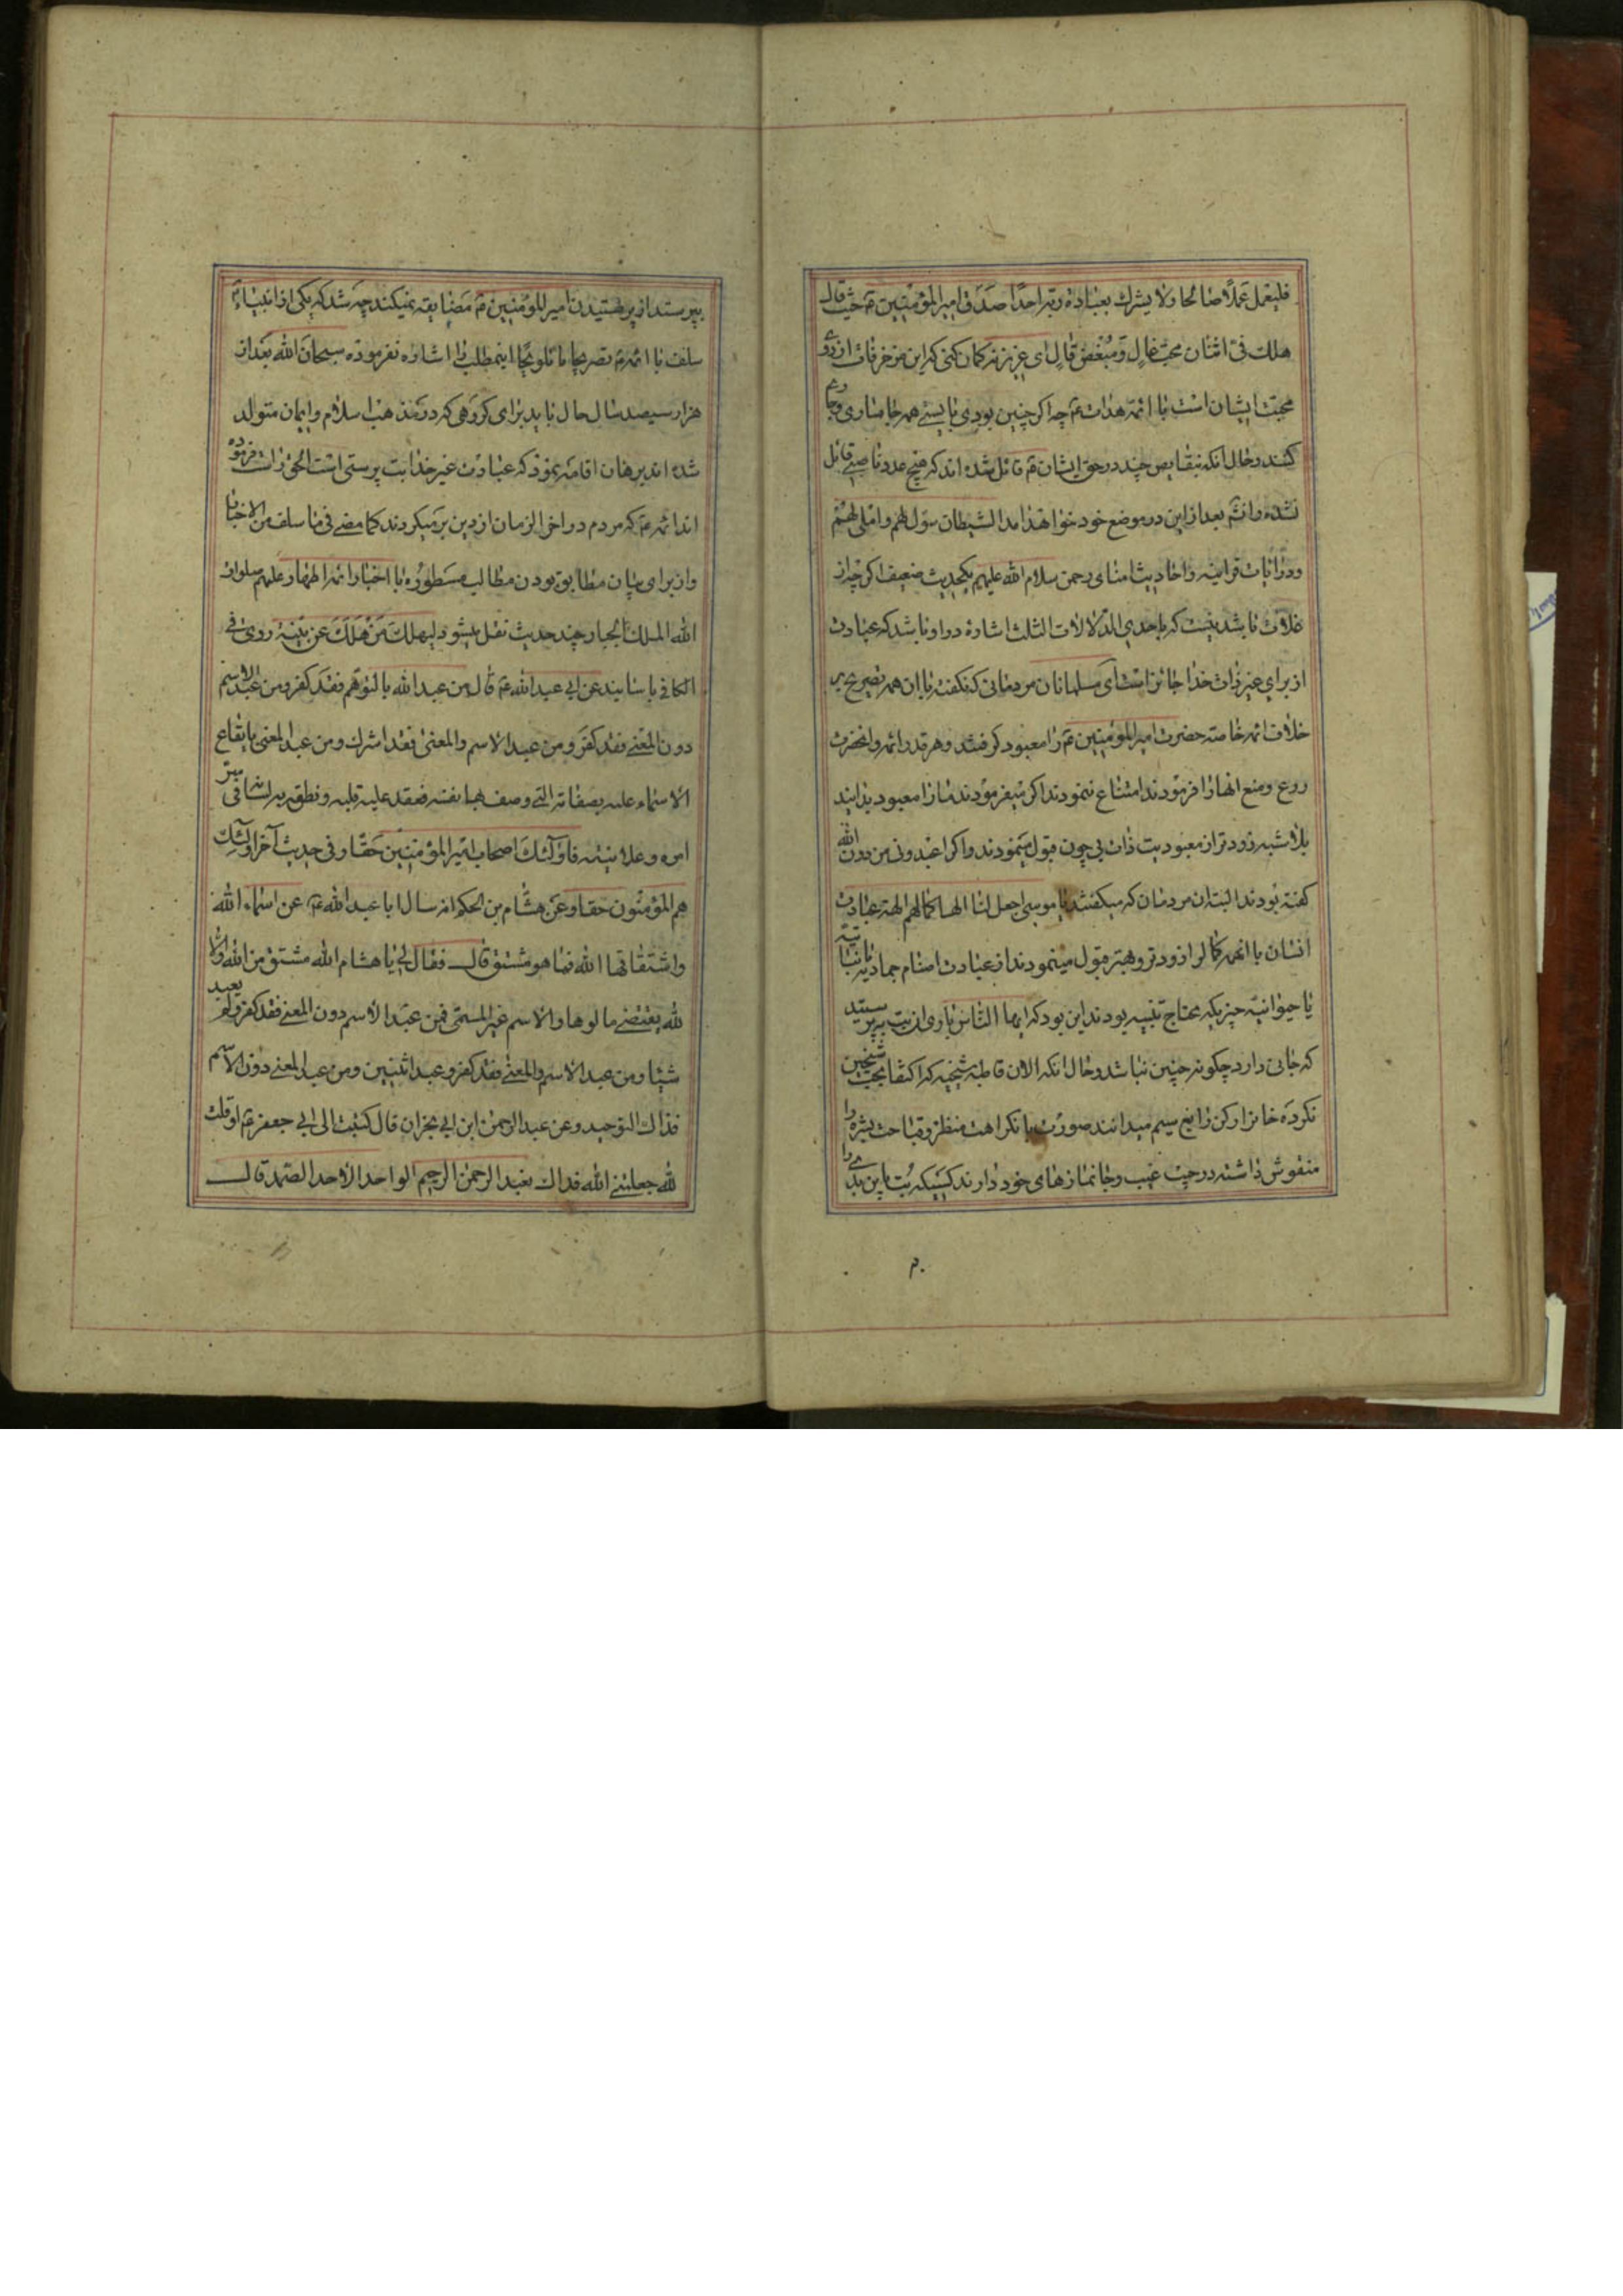 فلیعمل عملاً صالحا ولا یشرك بعبادة ربه احدًا صدق امیر المؤمنین ع حیث قال
هلك فیّ اثنان محبّ غالٍ و مُبْغِض قالٍ ای عزیز نه کمان کنی که این مزخرفات از روی
محبّت ایشان است با ائمّه هداة ع چه اکر چنین بودی بایستی همه جا مساوی
کنند و حال انکه بنقایص چند در حق ایشان ع قائل شده اند که هیچ عدو ناصبی قائل
نشده و انشم بعد از این در موضع خود خواهد امد الشیطان سوّل لهم و املی لهم
و در ایات قرانیه و احادیث امنای رحمن سلام الله علیهم یکحدیث ضعیف اکر چه از
غلاة باشد نیست که باحدی الدّلالات الثلث اشاره در او باشد که عبادت
از برای غیر ذات خدا جائز است ای مسلمانان مردمانی که نکفته با ان همه تصریح بر
خلاف ائمه خاصه حضرت امیر المؤمنین ع را معبود کرفتند و هر قدر ائمه و انحضرت
روع و منع انها را فرمودند امتناع ننمودند اکر میفرمودند ما را معبود بدانید
بلا شبه زودتر از معبودیت ذات بی چون قبول مینمودند و اکر اعبدونی من دون الله
کفته بودند البته ان مردمان که میکفتند یا موسی اجعل لنا الها کما لهم الهة عبادت
انسان با انهمه کمال را زودتر و بهتر قبول مینمودند از عبادت اصنام جمادیه یا نباتیه
یا حیوانیّه چیزیکه محتاج تنبیه بودند این بود که ایها الناس باری ان بت بپرستید
که جانی دارد چکونه چنین نباشد و حال انکه الان قاطبه شیخیه که اکتفا بمحبت شیخین
نکرده خامرا رکن رابع سیم میدانند صورت با نکراهت منظر و قباحت بشره را
منقوش داشته در جیب عیب و جانمازهای خود دارند کسیکه بُت باین بدی را
بپرستد از پرستیدن امیر المؤمنین ع مضایقه نمیکند چه شد که یکی از انبیاء
سلف یا ائمه ع تصریحا یا تلویحًا اینمطلب را اشاره نفرموده سبحان الله بعد از
هزار سیصد سال حال باید برای کروهی که در مذهب اسلام و ایمان متولد
شده اند برهان اقامه نمود که عبادت غیر خدا بت پرستی است الحق راست فرموده
اند ائمه ع که مردم در اخر الزمان از دین برمیکردند کما مضی فی ما سلف من الاخبار
و از برای بیان مطابق بودن مطالب مسطوره با اخبار ائمه اطهار علیهم صلوات
الله الملك الجبار چند حدیث نقل میشود لیهلك من هلك عن بیّنة روی فی
الکافی باسانید عن ابی عبد الله ع قال من عبد الله بالتوهّم فقد کفر ومن عبد الاسم
دون المعنی فقد کفر و من عبد الاسم والمعنی فقد اشرك ومن عبد المعنی بایقاع
الاسماء علیه بصفاته التی وصف بها نفسه فعقد علیه قلبه ونطق به لسانه فی سرّ
امره و علانیته فاولئك اصحاب امیر المؤمنین حقّا وفی حدیث آخر اولئك
هم المؤمنون حقا وعن هشام بن الحکم انه سال ابا عبد الله ع عن اسماء الله
واشتقاقها الله فما هو مشتق قال فقال لی یا هشام الله مشتق من اله والا
له یقتضی مالوها والاسم غیر المسمّی فمن عبد الاسم دون المعنی فقد کفر ولم یعبد
شیئا ومن عبد الاسم والمعنی فقد کفر وعبد اثنین ومن عبد المعنی دون الاسم
فذاك التوحید وعن عبد الرحمن ابن ابی نجران قال کتبت الی ابی جعفر ع او قلت
له جعلنی الله فداك نعبد الرحمن الرحیم الواحد الاحد الصّمد قال